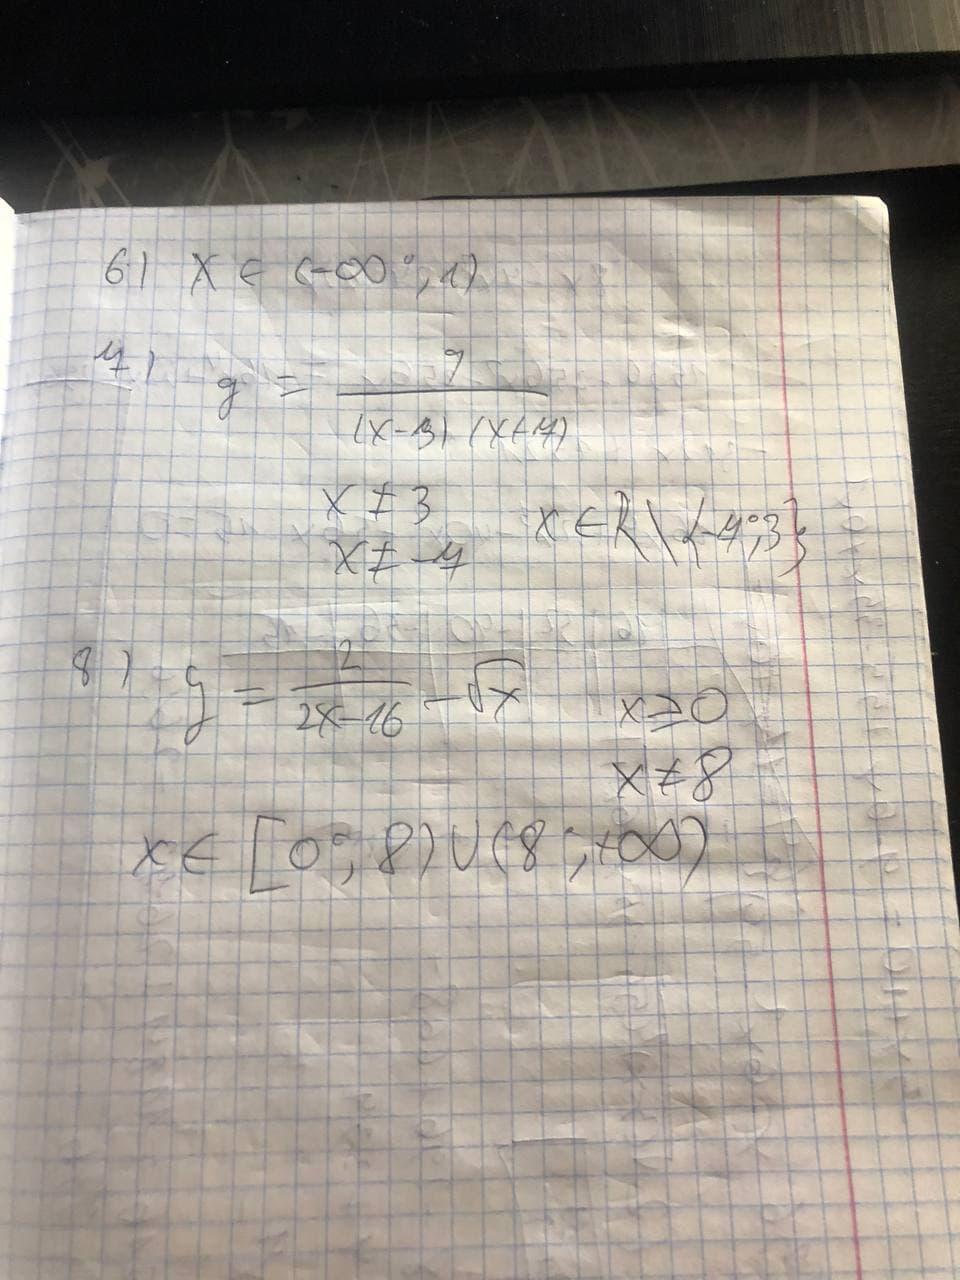 6) x ∈ (-∞; 1)
7) y = 9 / ((x-3)(x+7))
x ≠ 3
x ≠ -7 x ∈ R \ {-7; 3}
8) y = 2 / (2x-16) - √x x ≥ 0
x ≠ 8
x ∈ [0; 8) ∪ (8; +∞)